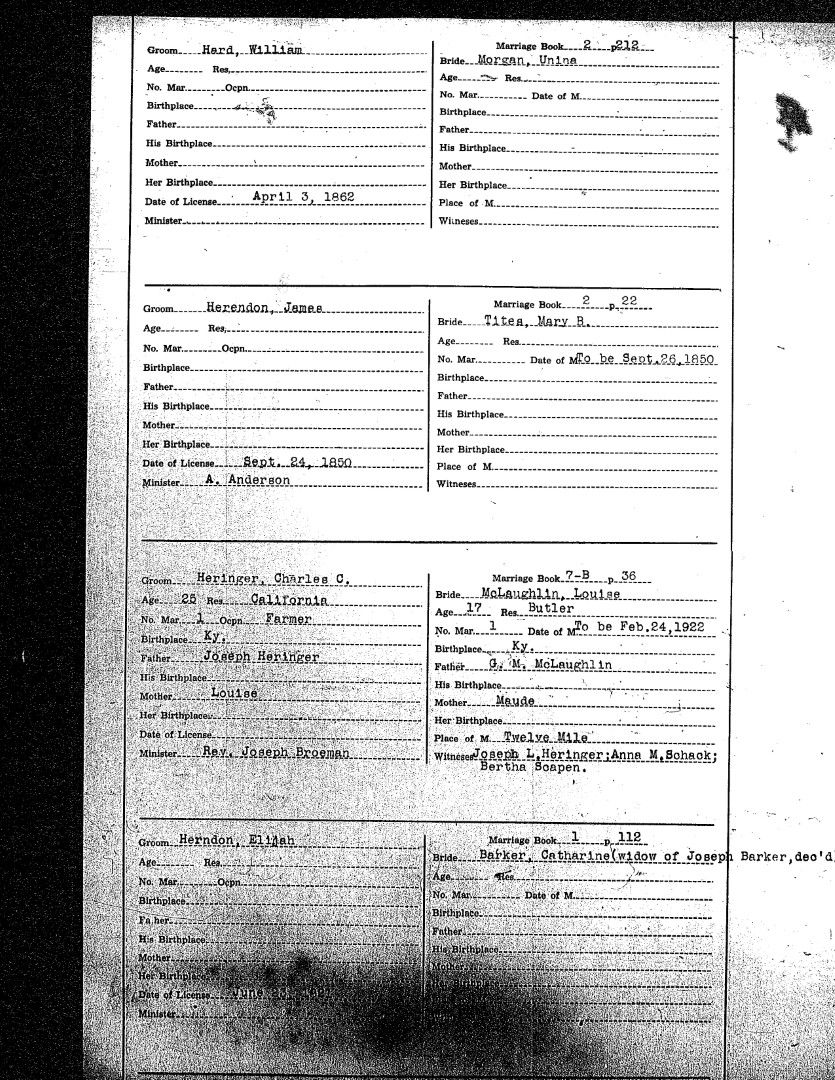 Groom Hard, William
Age Res.
No. Mar. Ocpn.
Birthplace
Father
His Birthplace
Mother
Her Birthplace
Date of License April 3, 1862
Minister
Marriage Book 2 p. 212
Bride Morgan, Unina
Age Res.
No. Mar. Date of M.
Birthplace
Father
His Birthplace
Mother
Her Birthplace
Place of M.
Witneses
Groom Herendon, James
Age Res.
No. Mar. Ocpn.
Birthplace
Father
His Birthplace
Mother
Her Birthplace
Date of License Sept. 24, 1850
Minister A. Anderson
Marriage Book 2 p. 22
Bride Tites, Mary B.
Age Res.
No. Mar. Date of M. To be Sept.26,1850
Birthplace
Father
His Birthplace
Mother
Her Birthplace
Place of M.
Witneses
Groom Heringer, Charles C.
Age 25 Res. California
No. Mar. 1 Ocpn. Farmer
Birthplace Ky.
Father Joseph Heringer
His Birthplace
Mother Louise
Her Birthplace
Date of License
Minister Rev. Joseph Broeman
Marriage Book 7-B p. 36
Bride McLaughlin, Louise
Age 17 Res. Butler
No. Mar. 1 Date of M. To be Feb.24,1922
Birthplace Ky.
Father G. M. McLaughlin
His Birthplace
Mother Maude
Her Birthplace
Place of M. Twelve Mile
Witneses Joseph L.Heringer;Anna M.Schack;
Bertha Soapen.
Groom Herndon, Elijah
Age Res.
No. Mar. Ocpn.
Birthplace
Father
His Birthplace
Mother
Her Birthplace
Date of License June
Minister
Marriage Book 1 p. 112
Bride Barker, Catharine(widow of Joseph Barker,dec'd
Age Res.
No. Mar. Date of M.
Birthplace
Father
His Birthplace
Mother
Her Birthplace